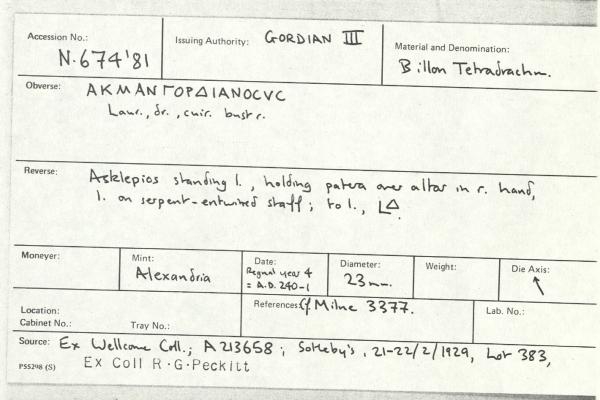 Accession No.: N.674'81
Issuing Authority: GORDIAN III
Material and Denomination: Billon Tetradrachm.
Obverse: ΑΚΜΑΝΓΟΡΔΙΑΝΟCVC
Laur., dr., cuir. bust r.
Reverse: Asklepios standing l., holding patera over altar in r. hand,
l. on serpent-entwined staff; to l., LΔ.
Moneyer:
Mint: Alexandria
Date: Regnal year 4
= A.D. 240-1
Diameter: 23mm.
Weight:
Die Axis: ↖
Location:
Cabinet No.:
Tray No.:
References: Cf Milne 3377.
Lab. No.:
Source: Ex Wellcome Coll.; A213658; Sotheby's, 21-22/2/1929, Lot 383,
PS5298 (S) Ex Coll R·G·Peckitt